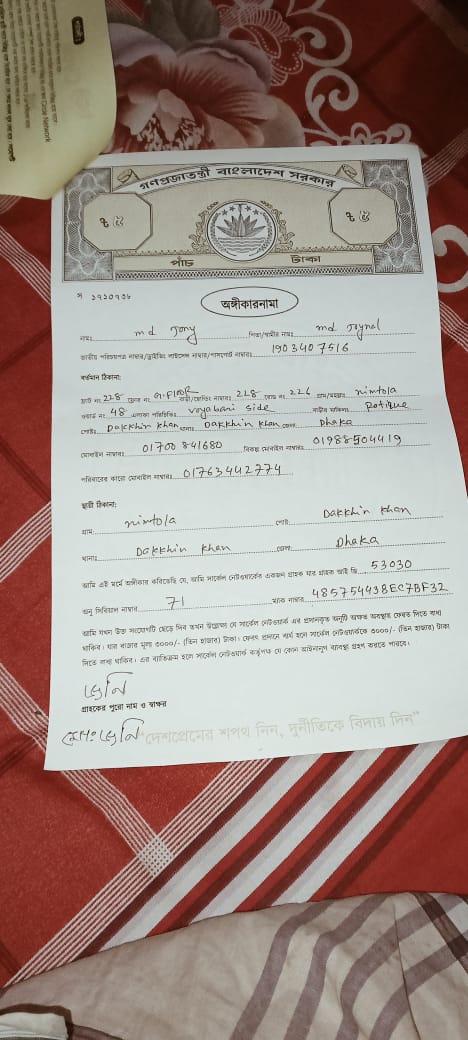 গণপ্রজাতন্ত্রী বাংলাদেশ সরকার
৳ ৫ ৳ ৫
পাঁচ টাকা
অঙ্গীকারনামা
নামঃ md Jony পিতা/স্বামীর নামঃ md Joynal
জাতীয় পরিচয়পত্র নাম্বার/ড্রাইভিং লাইসেন্স নাম্বার/পাসপোর্ট নাম্বারঃ 1903407516
বর্তমান ঠিকানা:
ফ্লাট নং 228 ফ্লোর নং G.FlooR বাড়ী/হোল্ডিং নাম্বারঃ 228 রোড নং 226 গ্রাম/মহল্লাঃ nimtola
ওয়ার্ড নং 48 এলাকা পরিচিতিঃ voyabani side বাড়ীর মালিকঃ Rofique
পোষ্টঃ Dakkhin khan থানাঃ Dakkhin khan জেলাঃ Dhaka
মোবাইল নাম্বারঃ 01700 841680 বিকল্প মোবাইল নাম্বারঃ 01988504419
পরিবারের কারো মোবাইল নাম্বারঃ 01763442774
স্থায়ী ঠিকানা:
গ্রামঃ nimtola পোষ্টঃ Dakkhin khan
থানাঃ Dakkhin khan জেলাঃ Dhaka
আমি এই মর্মে অঙ্গীকার করিতেছি যে, আমি সার্কেল নেটওয়ার্কের একজন গ্রাহক যার গ্রাহক আই ডি 53030
অনু সিরিয়াল নাম্বার 71 ম্যাক নাম্বার 485754438EC7BF32
আমি যখন উক্ত সংযোগটি ছেড়ে দিব তখন উল্লেখ্য যে সার্কেল নেটওয়ার্ক এর প্রদানকৃত অনুটি অক্ষত অবস্থায় ফেরত দিতে বাধ্য
থাকিব। যার বাজার মূল্য ৩০০০/- (তিন হাজার) টাকা। ফেরৎ প্রদানে ব্যর্থ হলে সার্কেল নেটওয়ার্ককে ৩০০০/- (তিন হাজার) টাকা
দিতে বাধ্য থাকিব। এর ব্যতিক্রম হলে সার্কেল নেটওয়ার্ক কর্তৃপক্ষ যে কোন আইনানুগ ব্যবস্থা গ্রহণ করতে পারবে।
জনি
গ্রাহকের পুরো নাম ও স্বাক্ষর
মোঃ জনি "দেশপ্রেমের শপথ নিন, দুর্নীতিকে বিদায় দিন"